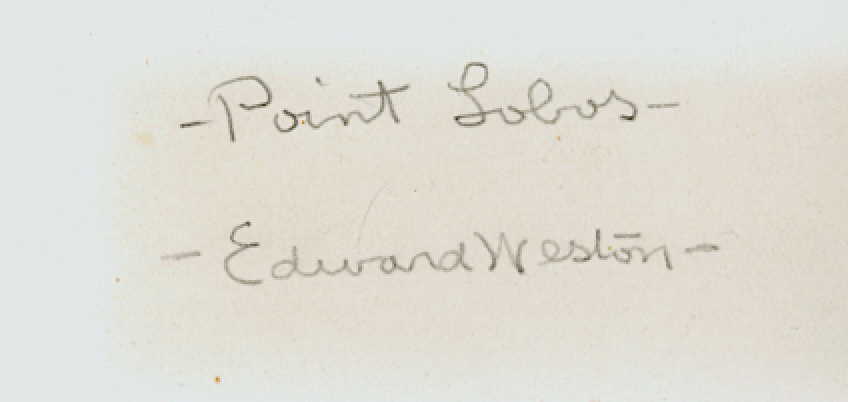 -Point Lobos-
- Edward Weston -